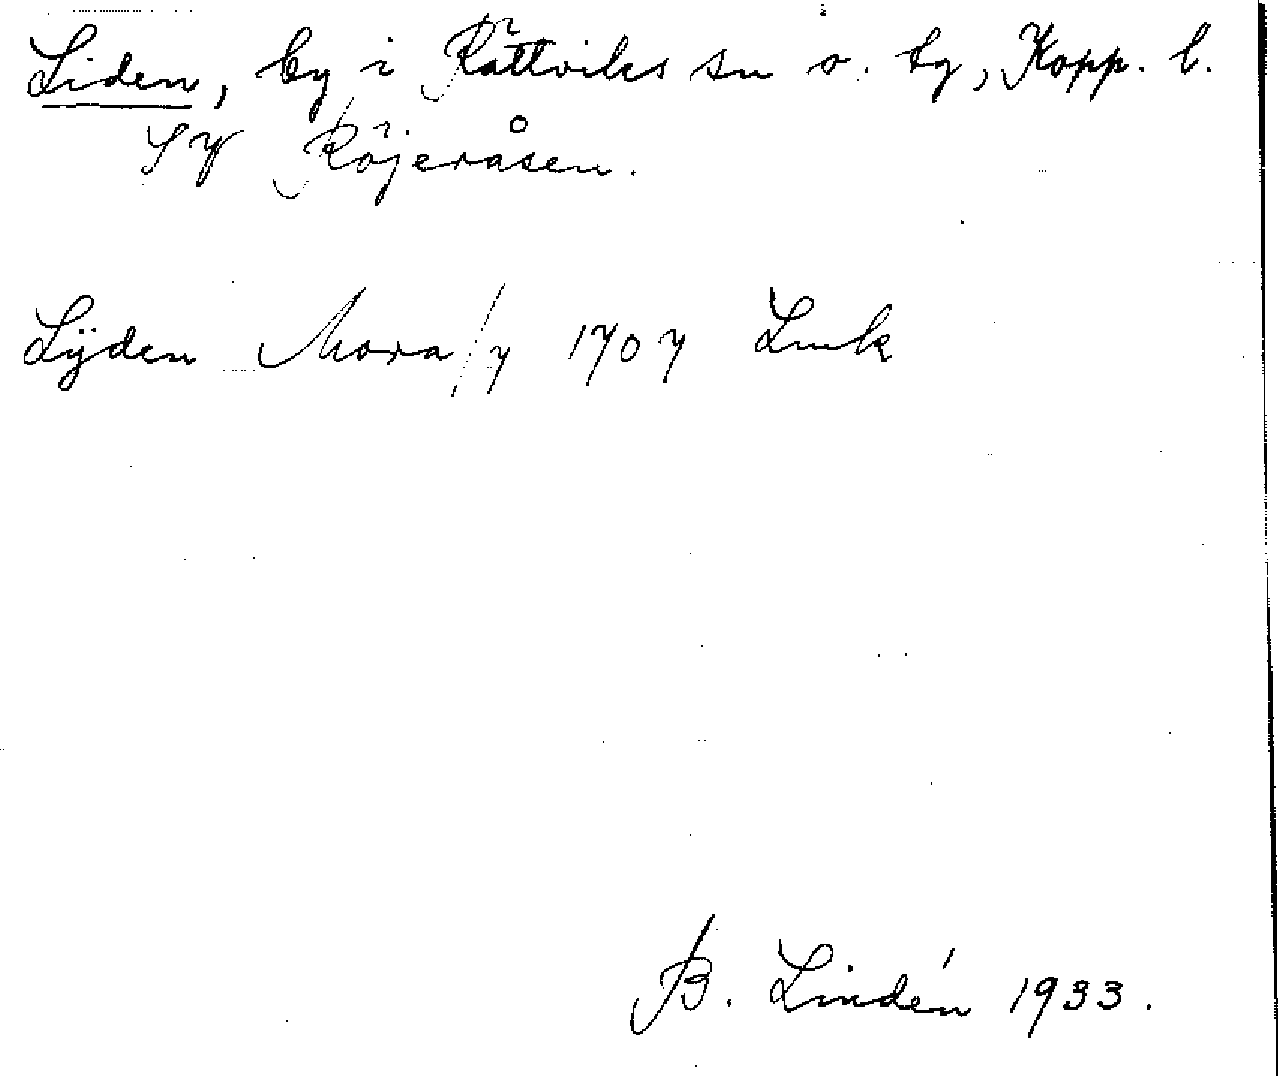 Liden, by i Rättviks sn o. tg, Kopp. l.
SV Röjeråsen.
Lÿden Mora/7 1707 Lmk
B. Lindén 1933.